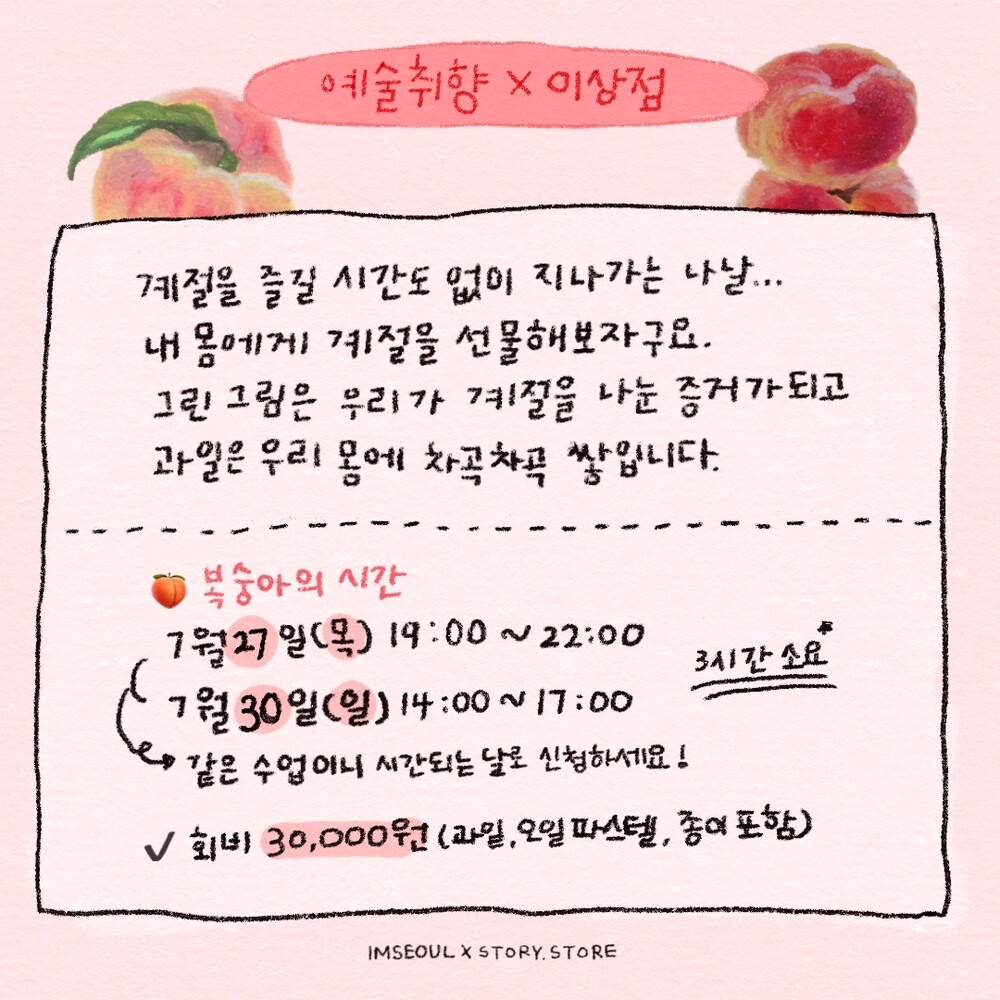 예술취향 x 이상점
계절을 즐길 시간도 없이 지나가는 나날...
내 몸에게 계절을 선물해보자구요.
그린 그림은 우리가 계절을 나눈 증거가되고
과일은 우리 몸에 차곡차곡 쌓입니다.
복숭아의 시간
7월 27일(목) 19:00 ~ 22:00
3시간 소요*
7월 30일(일) 14:00 ~ 17:00
같은 수업이니 시간되는 날로 신청하세요!
✓ 회비 30,000원 (과일, 오일파스텔, 종이 포함)
IMSEOUL X STORY.STORE